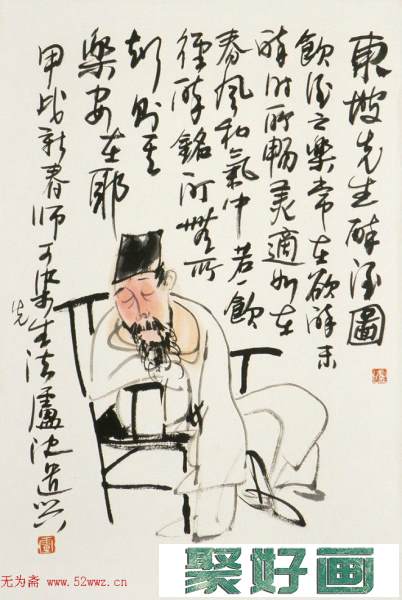 東坡先生醉酒圖
飲酒之樂常在欲醉未
醉時酣暢美適如在
春風和氣中若一飲
徑醉酩酊無所
知則其
樂安在耶
甲戌新春師可染先生法廬沈道興
聚好画
无为斋 www.52wwz.cn